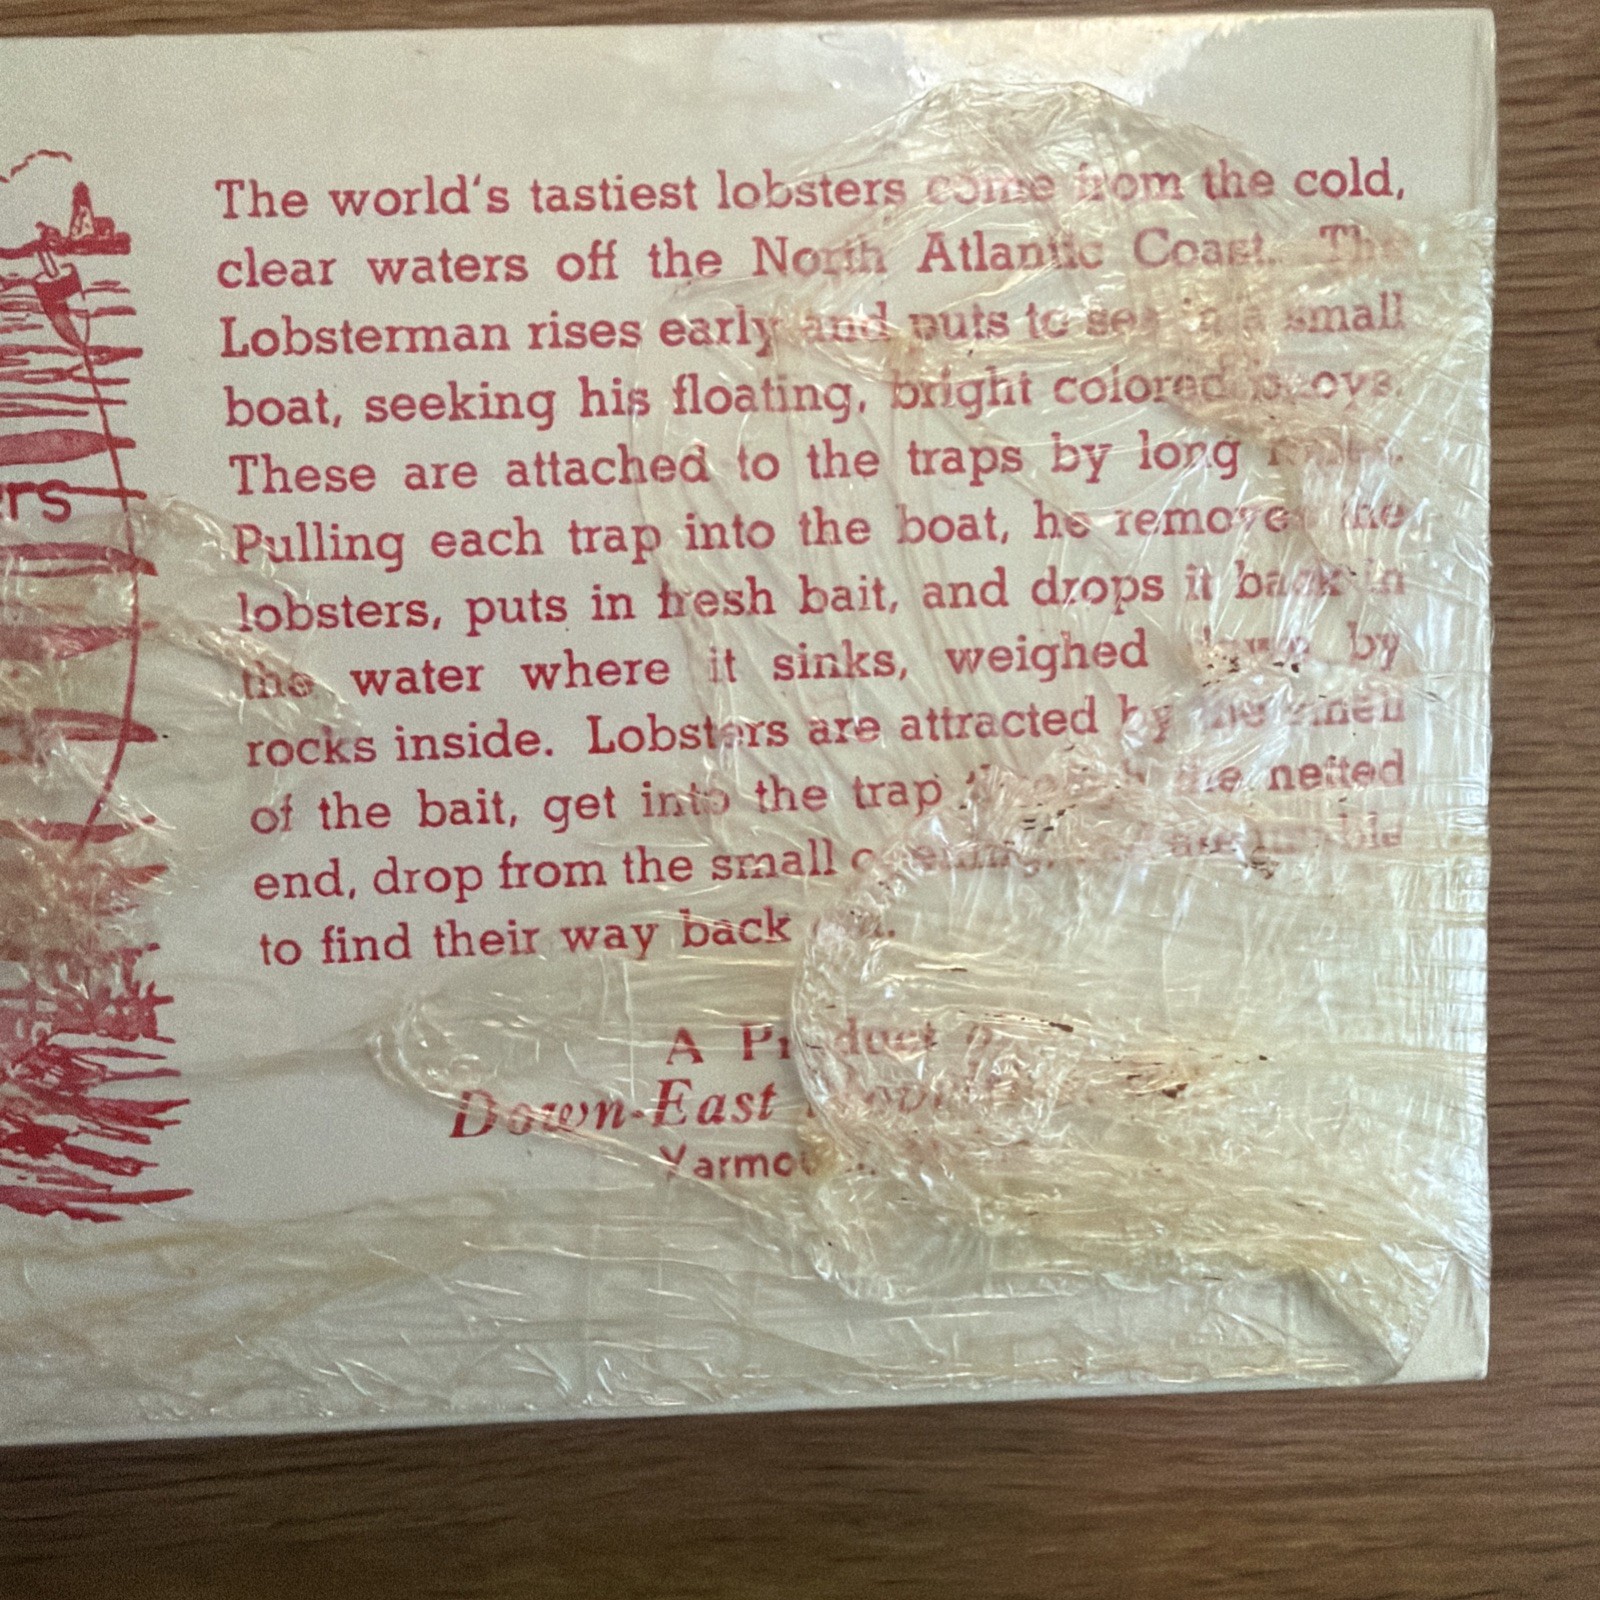 The world's tastiest lobsters come from the cold,
clear waters off the North Atlantic Coast. The
Lobsterman rises early and puts to sea in a small
boat, seeking his floating, bright colored buoys.
These are attached to the traps by long
Pulling each trap into the boat, he removes the
lobsters, puts in fresh bait, and drops it back in
the water where it sinks, weighed down by
rocks inside. Lobsters are attracted by the smell
of the bait, get into the trap through the netted
end, drop from the small
to find their way back
ers
A Product
Down-East